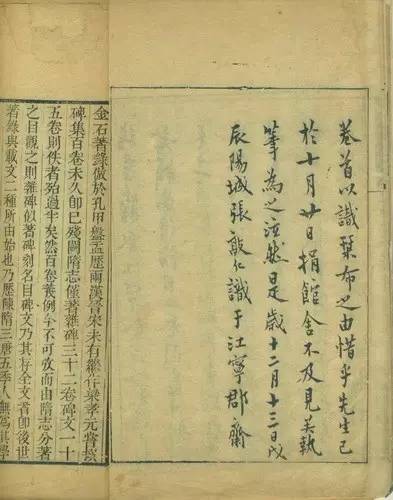 卷首以識栞布之由惜乎先生已
於十月廿日捐館舍不及見矣執
筆為之泫然是歲十二月十三日戊
辰陽城張敦仁識于江寧郡齋
金石著錄倣於孔甲盤盂歷兩漢晉宋未有繼作梁孝元嘗撰
碑集百卷未久卽已殘闕隋志僅著雜碑二十二卷碑文一十
五卷則佚者殆過半矣然百卷義例今不可攷而由隋志分著
之目觀之則雜碑似著碑刻名目碑文乃其存全文者卽後世
著錄與載文二種所由始也乃歷陳隋三唐五季人無爲其學